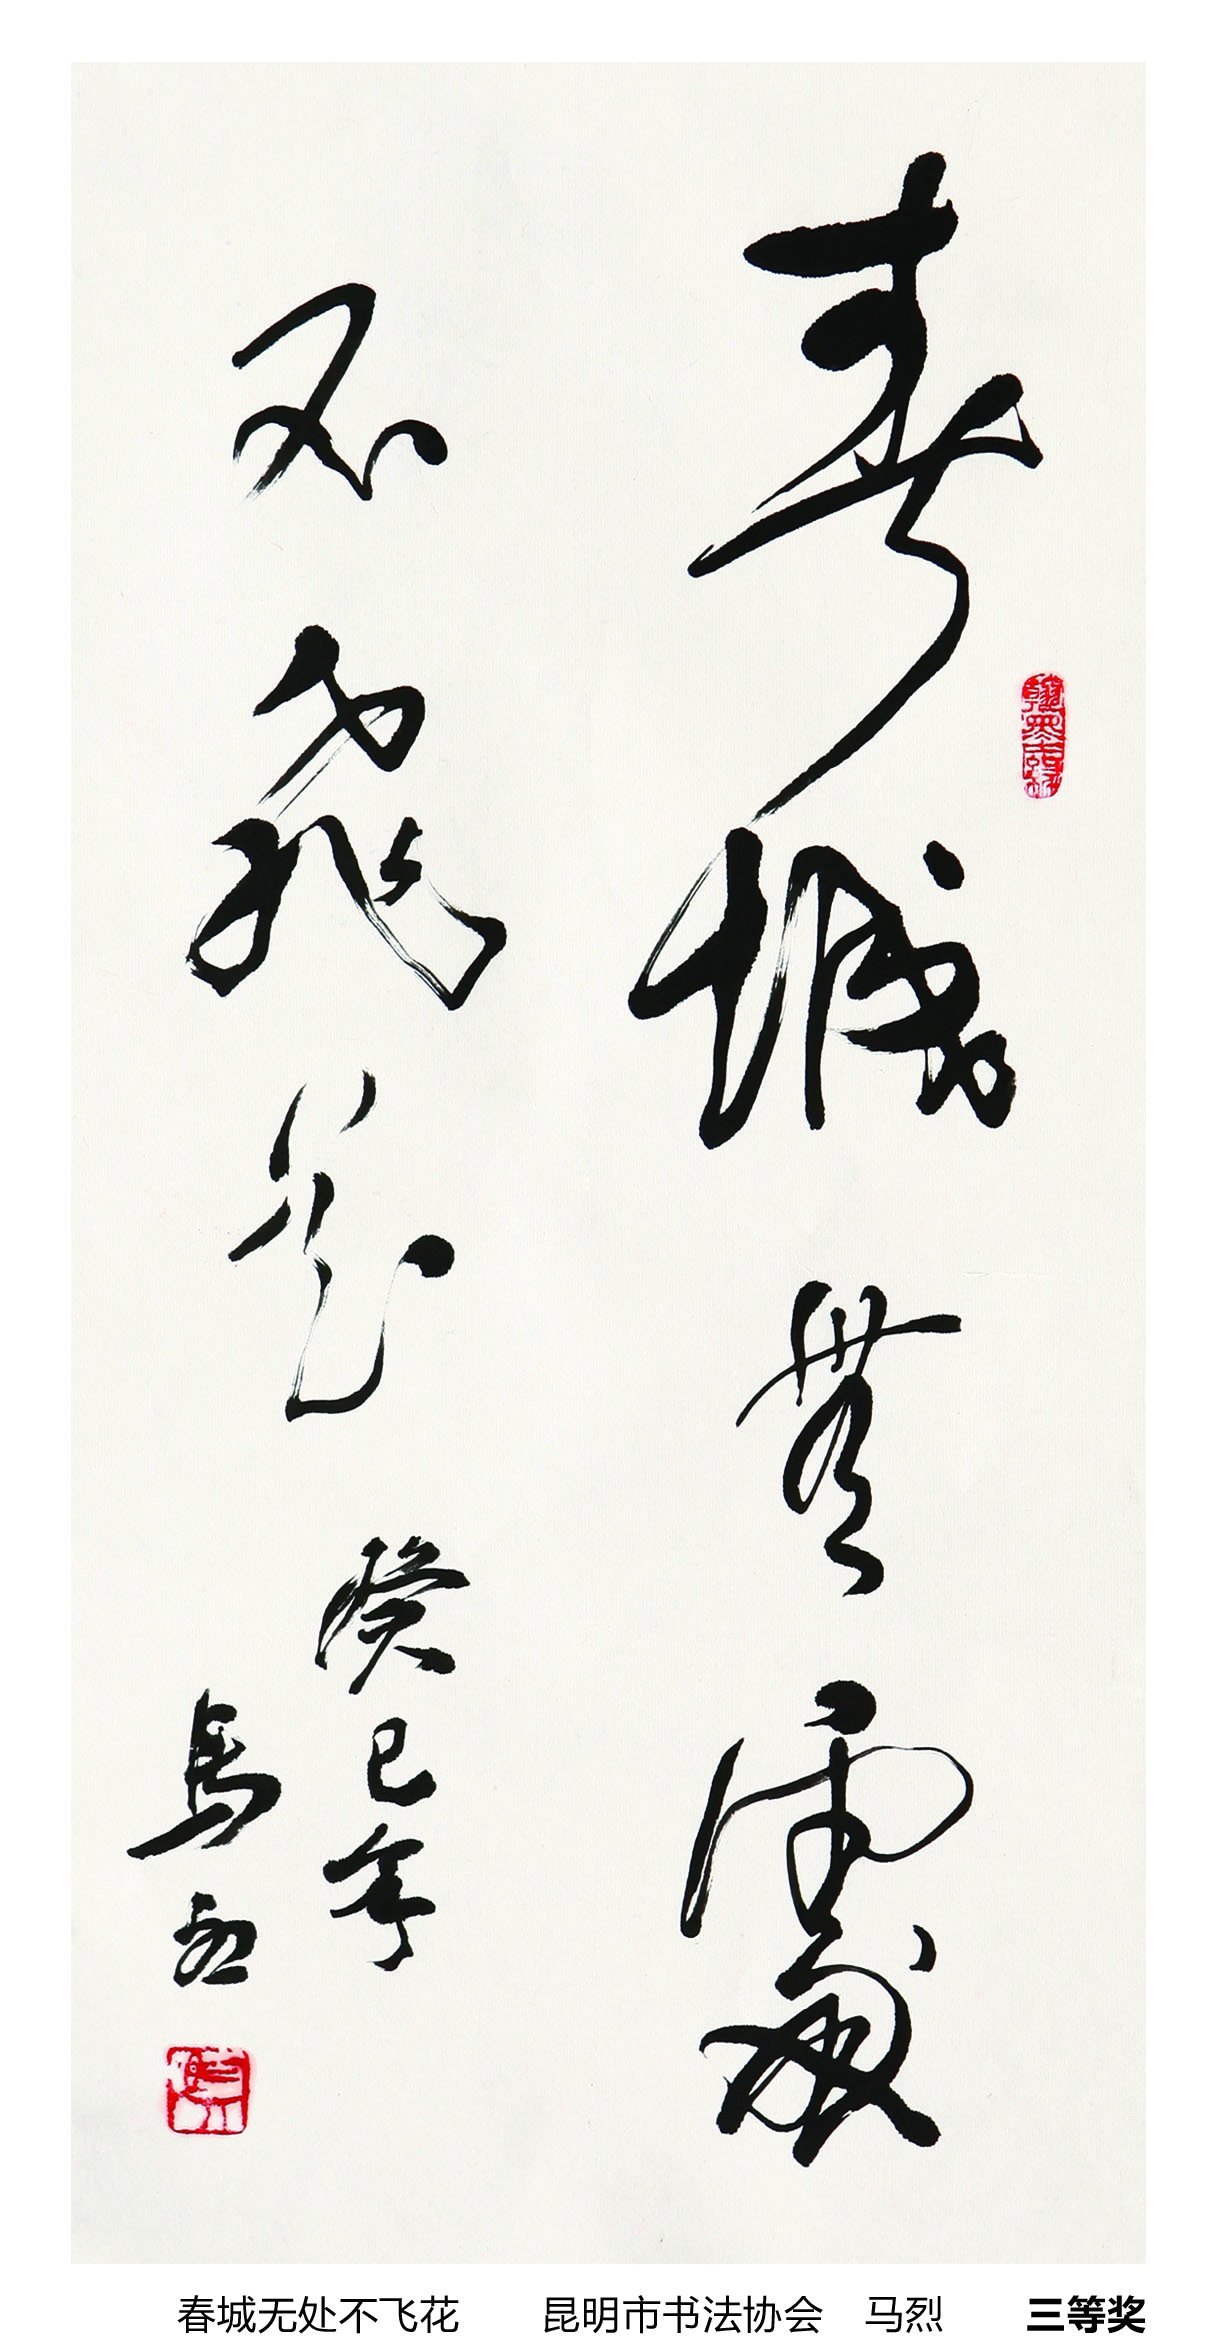 春城無處
不飛花
癸巳年
馬烈
春城无处不飞花 昆明市书法协会 马烈 三等奖